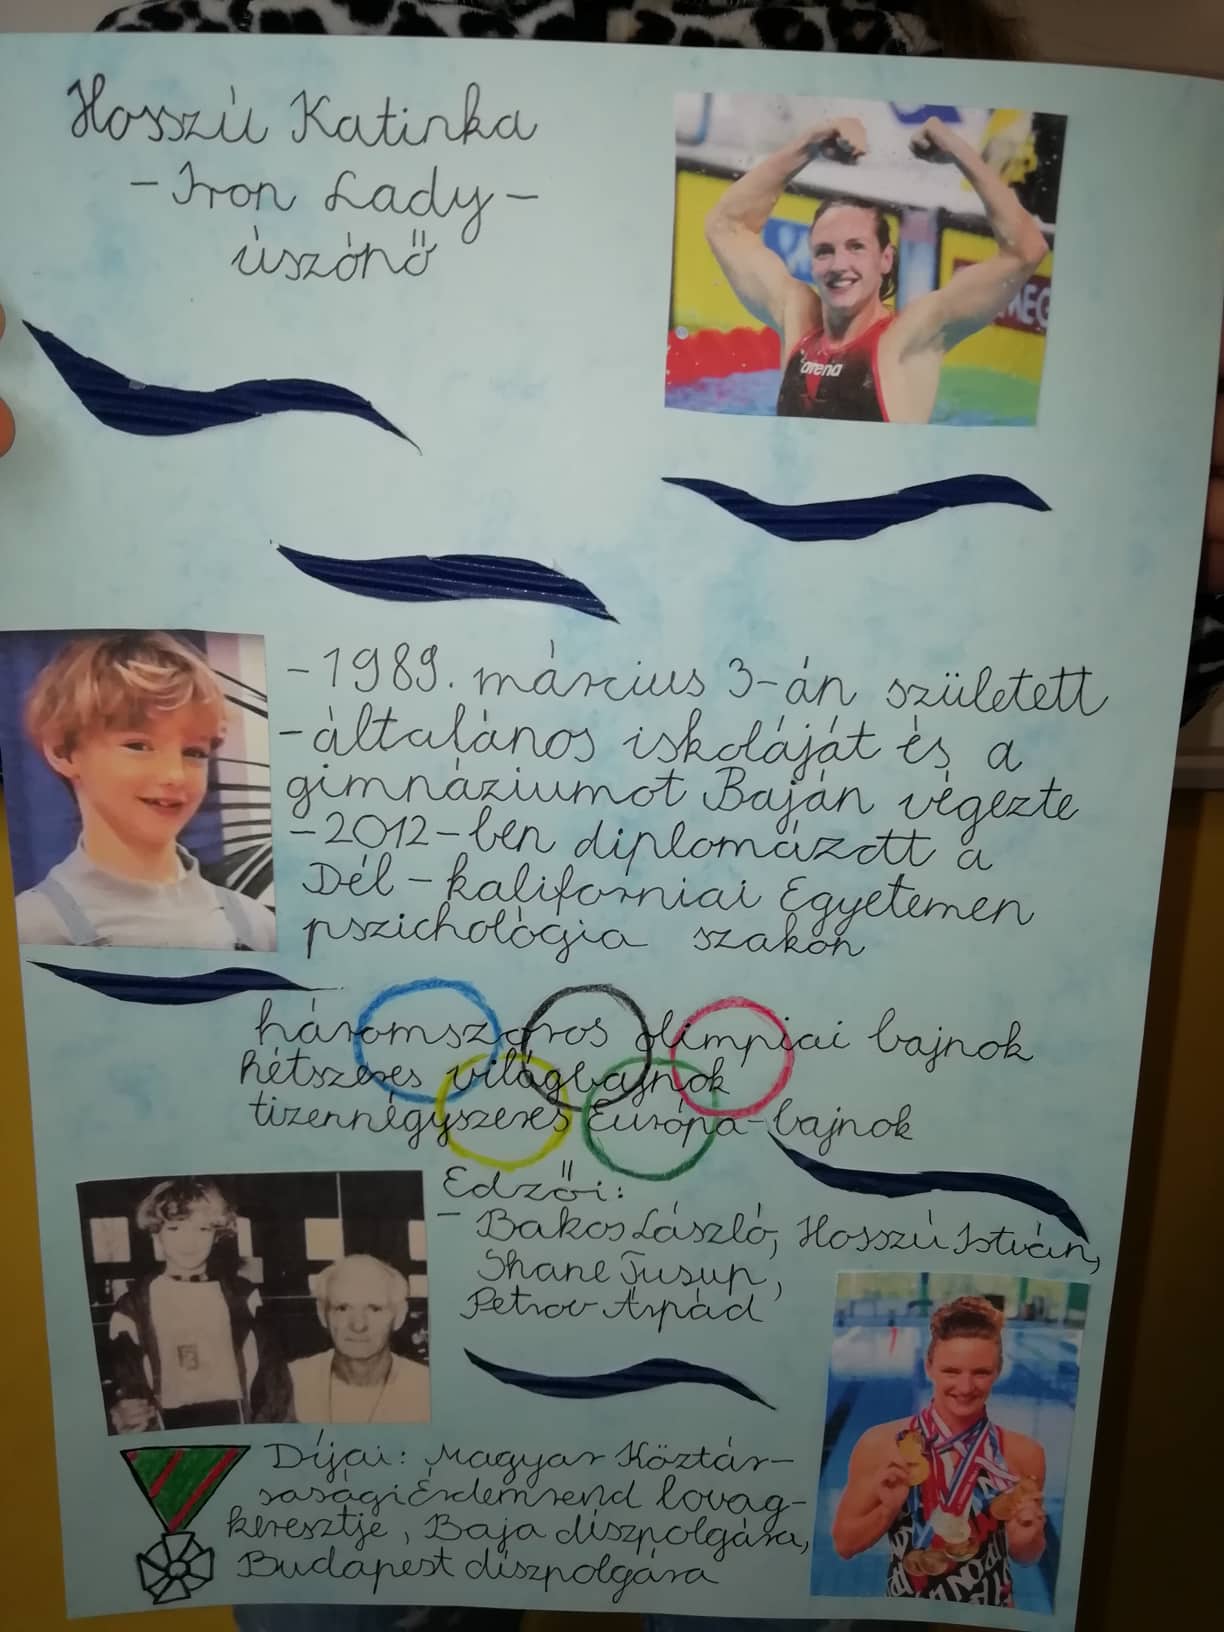 Hosszú Katinka
-Iron Lady-
úszónő
arena
-1989. március 3-án született
-általános iskoláját és a
gimnáziumot Baján végezte
-2012-ben diplomázott a
Dél-kaliforniai Egyetemen
pszichológia szakon
háromszoros olimpiai bajnok
hétszeres világbajnok
tizennégyszeres Európa-bajnok
Edzői:
- Bakos László, Hosszú István,
Shane Tusup,
Petrov Árpád
Díjai: Magyar Köztár-
sasági Érdemrend lovag-
keresztje, Baja díszpolgára,
Budapest díszpolgára